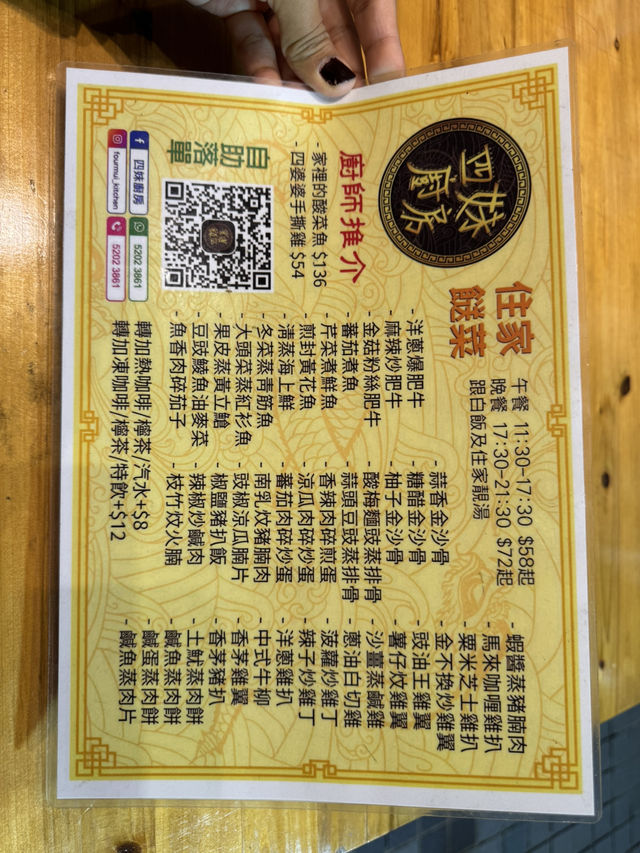 四妹
廚房
住家
餸菜
午餐 11:30-17:30 $58起
晚餐 17:30-21:30 $72起
跟白飯及住家靚湯
廚師推介
- 家裡的酸菜魚 $136
- 四婆婆手撕雞 $54
自助落單
四妹廚房
5202 3861
fourmui_kitchen
5202 3861
- 洋蔥爆肥牛
- 麻辣炒肥牛
- 金菇粉絲肥牛
- 蕃茄煮魚
- 芹菜煮鮮魚
- 煎封黃花魚
- 清蒸海上鮮
- 冬菜蒸青筋魚
- 大頭菜蒸紅衫魚
- 果皮蒸黃立鱠
- 豆豉鯪魚油麥菜
- 魚香肉碎茄子
- 蒜香金沙骨
- 糖醋金沙骨
- 柚子金沙骨
- 酸梅麵豉蒸排骨
- 蒜頭豆豉蒸排骨
- 香辣肉碎煎蛋
- 涼瓜肉碎炒蛋
- 蕃茄肉碎炒蛋
- 南乳炆豬腩肉
- 豉椒涼瓜腩片
- 椒鹽豬扒飯
- 辣椒炒鹹肉
- 枝竹炆火腩
- 蝦醬蒸豬腩肉
- 馬來咖喱雞扒
- 粟米芝士雞扒
- 金不換炒雞翼
- 豉油王雞翼
- 薯仔炆雞翼
- 沙薑蒸鹹雞
- 蔥油白切雞
- 菠蘿炒雞丁
- 辣子炒雞丁
- 洋蔥雞扒
- 中式牛柳
- 香茅雞翼
- 香茅豬扒
- 土魷蒸肉餅
- 鹹魚蒸肉餅
- 鹹蛋蒸肉餅
- 鹹魚蒸肉片
轉加熱咖啡/檸茶/汽水+$8
轉加凍咖啡/檸茶/特飲+$12